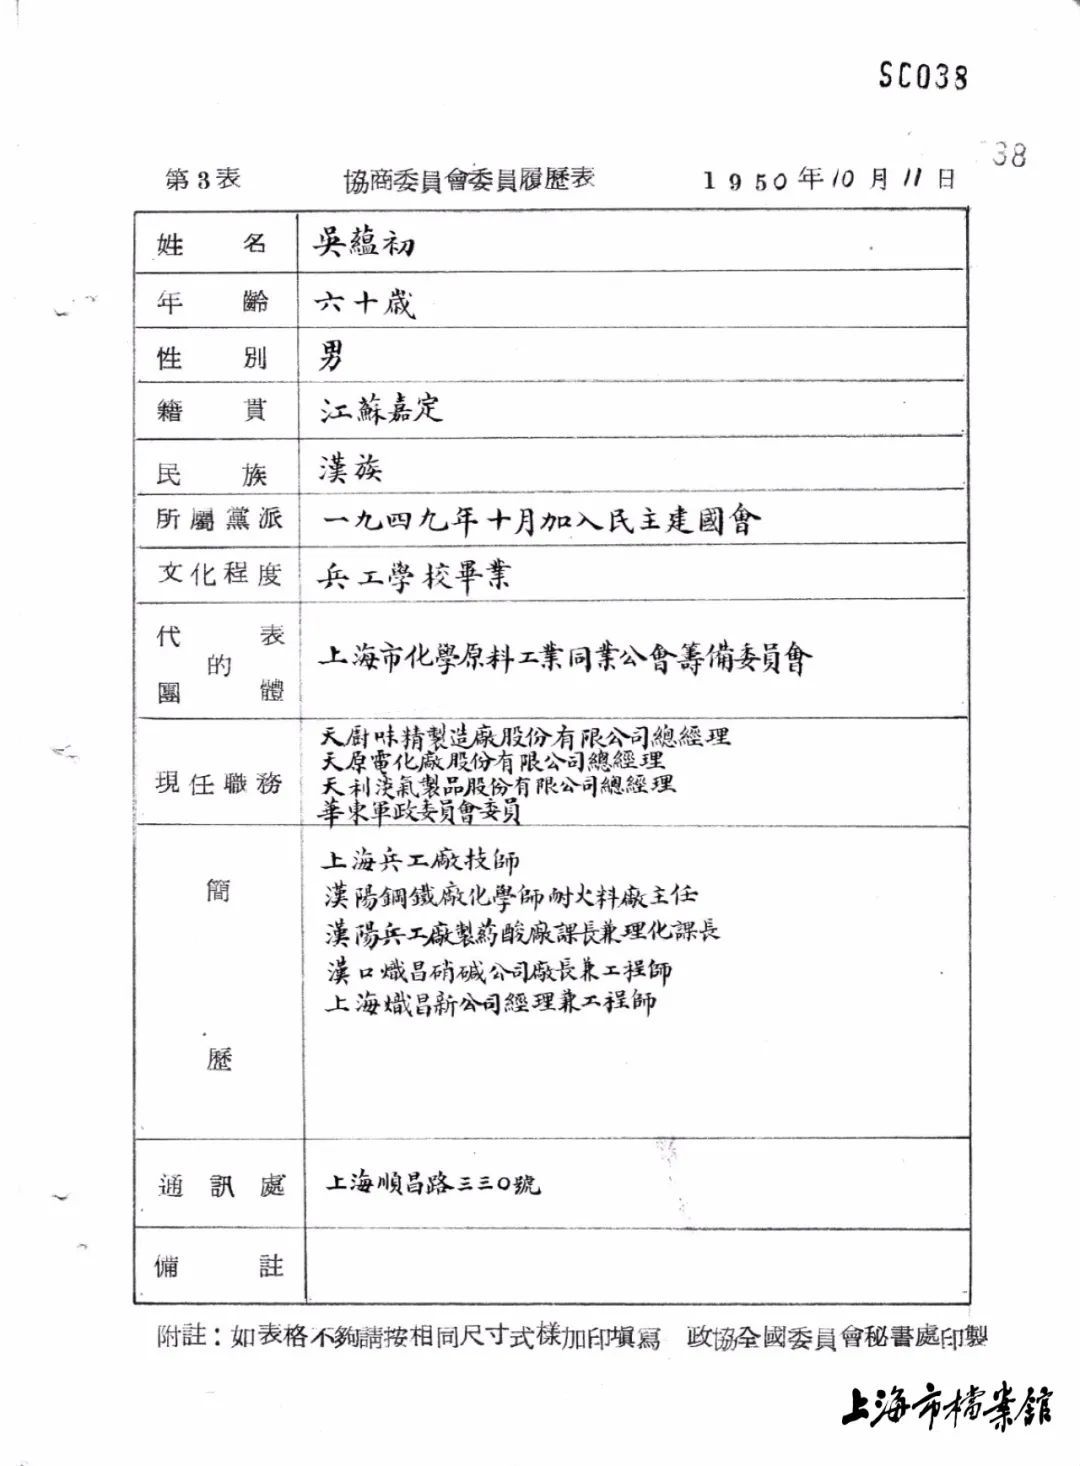 SC038
38
第3表 協商委員會委員履歷表 1950年10月11日
姓名 吳蘊初
年齡 六十歲
性別 男
籍貫 江蘇嘉定
民族 漢族
所屬黨派 一九四九年十月加入民主建國會
文化程度 兵工學校畢業
代表的團體 上海市化學原料工業同業公會籌備委員會
現任職務 天廚味精製造廠股份有限公司總經理
天原電化廠股份有限公司總經理
天利淡氣製品股份有限公司總經理
華東軍政委員會委員
簡歷 上海兵工廠技師
漢陽鋼鐵廠化學師耐火料廠主任
漢陽兵工廠製葯酸廠課長兼理化課長
漢口熾昌硝碱公司廠長兼工程師
上海熾昌新公司經理兼工程師
通訊處 上海順昌路三三〇號
備註
附註：如表格不夠請按相同尺寸式樣加印填寫 政協全國委員會秘書處印製
上海市檔案館